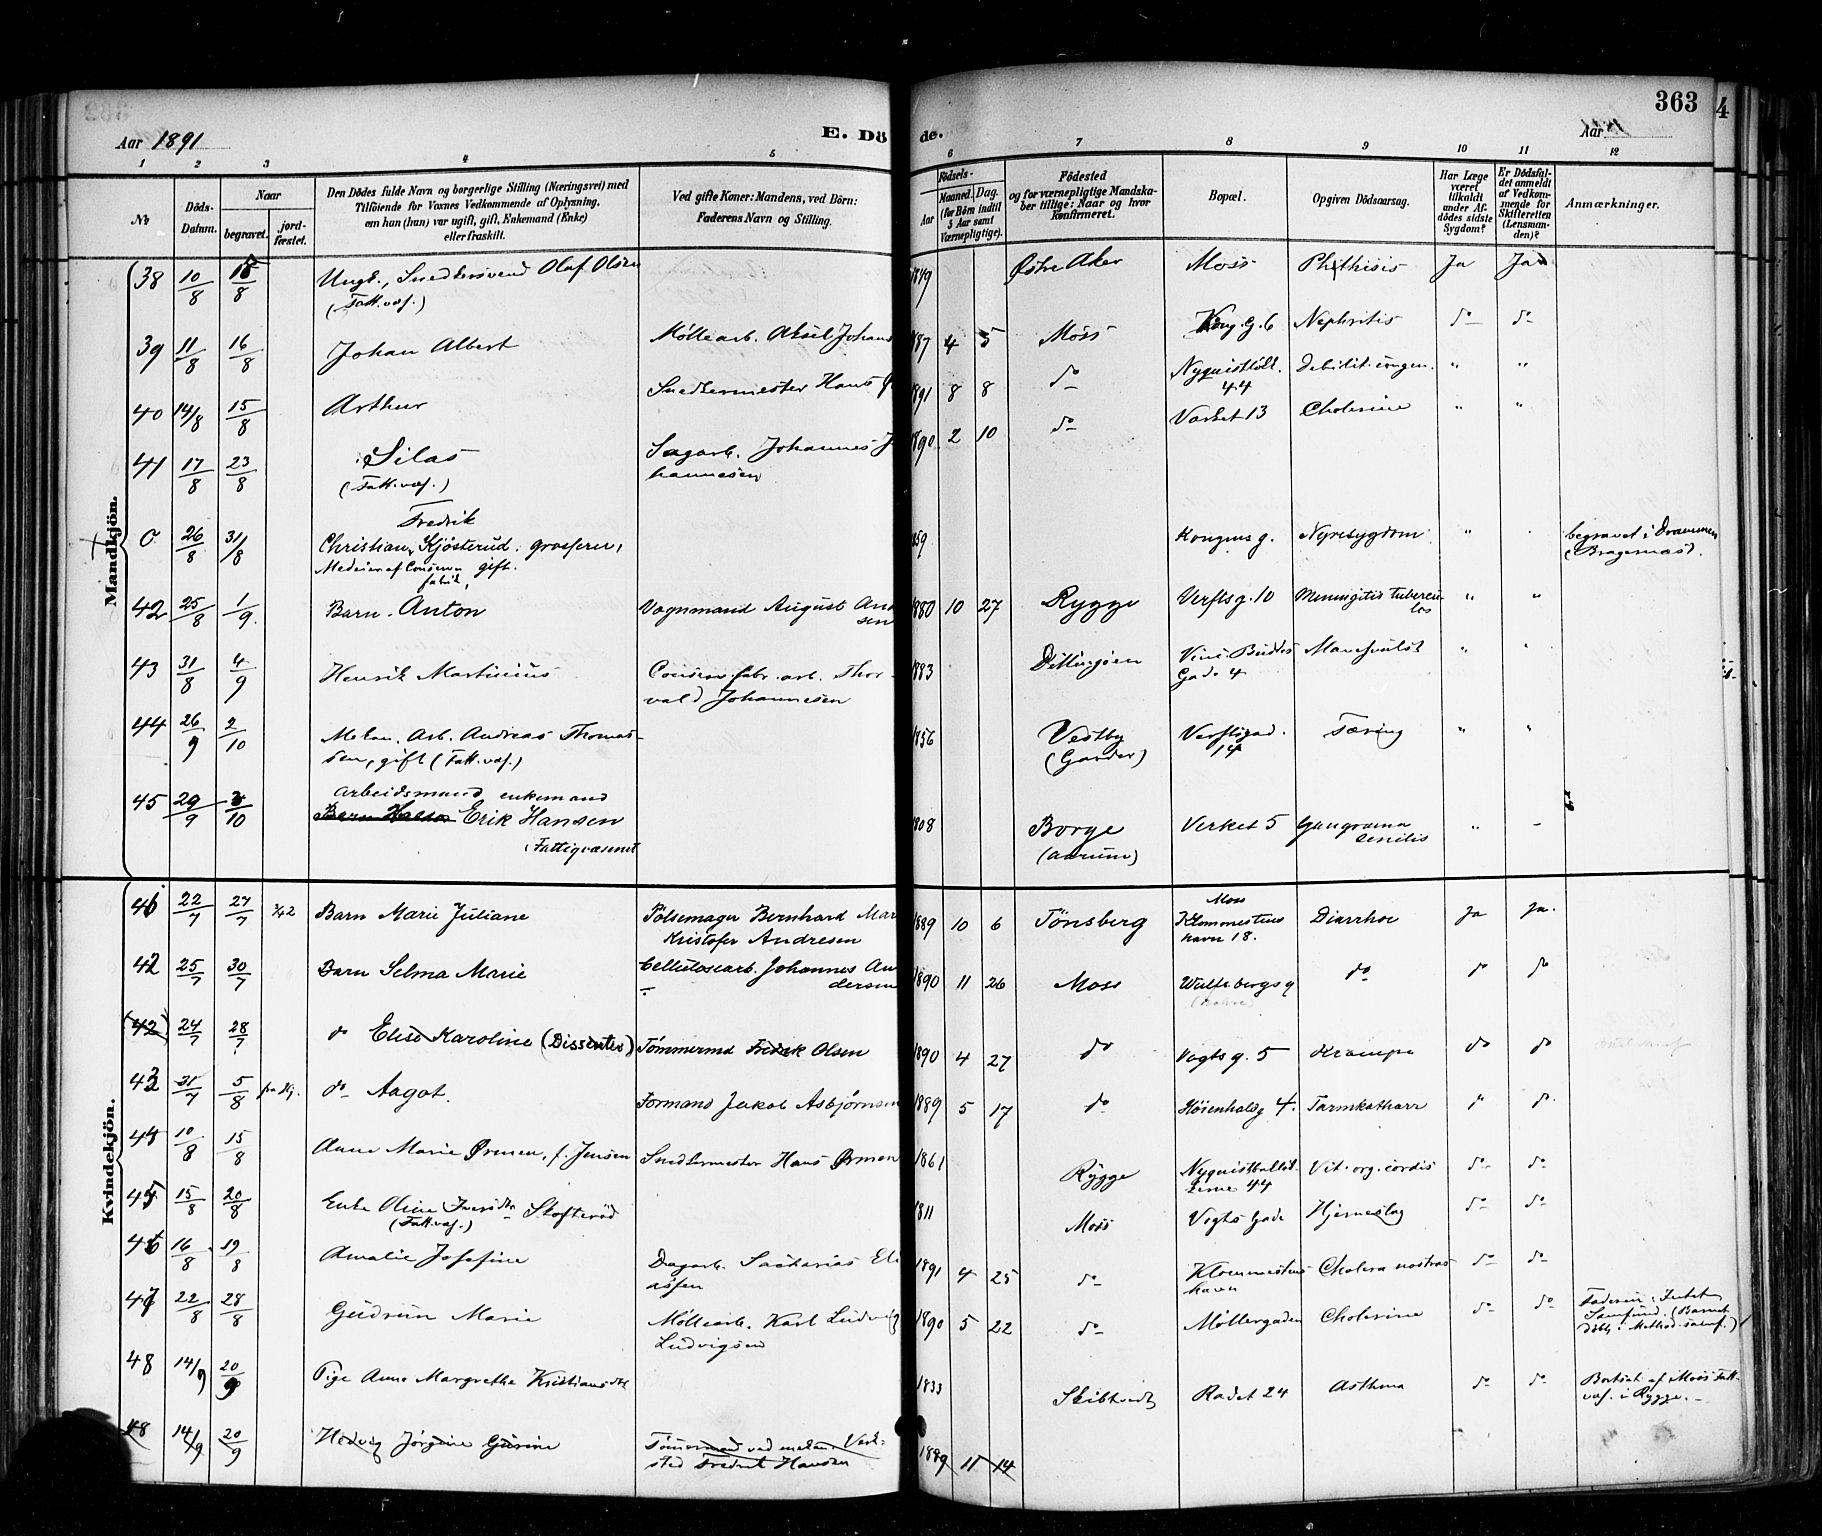 363
4
Aar 1891
E. Dö
de.
Aar 1891
1 2 3 4 5 6 7 8 9 10 11 12
No
Döds-
Datum.
Naar
begravet.
jord-
fæstet.
Den Dödes fulde Navn og borgerlige Stilling (Næringsvei) med
Tilföiende for Voxnes Vedkommende af Oplysning,
om han (hun) var ugift, gift, Enkemand (Enke)
eller fraskilt.
Ved gifte Koner: Mandens, ved Börn:
Faderens Navn og Stilling.
Födsels-
Aar
Maaned.
Dag.
(for Börn indtil
5 Aar samt
Værnepligtige).
Födested
og for værnepligtige Mandska-
ber tillige: Naar og hvor
konfirmeret.
Bopæl.
Opgiven Dödsaarsag.
Har Læge
været
tilkaldt
under Af-
dödes sidste
Sygdom?
Er Dödsfal-
det anmeldt
af Vedkom-
mende for
Skifteretten
(Lensman-
den)?
Anmærkninger.
Mandkjön.
38 10/8 15/8 Ungk., Snedkersvend Olaf Olsen 1849 Østre Aker Moss Phthisis Ja Ja
(Fatt.væs.)
39 11/8 16/8 Johan Albert Møllearb. Aksel Johans 1887 4 5 Moss Kong. g. 6 Nephritis do do
40 14/8 15/8 Arthur Snedkermester Hans 1891 8 8 do Nyquistløkk. 44 Debilit. congen. " "
41 17/8 23/8 Silas Sagarb. Johannes J 1890 2 10 do Værket 13 Cholerine " "
(Fatt.væs.) hannesen
Fredrik
0 26/8 31/8 Christian Kjøsterud, grosserer, 1859 Kongens g. Nyresygdom " " begravet i Drammen
Medeier af Conserv. gift. (Bragernæs).
fabrik,
42 25/8 1/9 Barn Anton Vognmand August And 1880 10 27 Rygge Verftsg. 10 Meningitis tubercu- " "
sen los
43 31/8 4/9 Henrik Martinius Conserv. fabr. arb. Thor- 1883 Dillingøen Vine Buddes Mavesvulst " "
vald Johannesen Gade 4
44 26/9 2/10 Mekan. Arb. Andreas Thomas- 1856 Vestby Verftsgad. Tæring " "
sen, gift (Fatt.væs.) (Garder) 14
Arbeidsmand enkemand
45 29/9 3/10 Erik Hansen 1808 Borge Verket 5 Gangræna " -
(Fattigvæsenet (Aarum) senilis
Kvindekjön.
41 22/7 27/7 Barn Marie Juliane Pølsemager Bernhard Mar 1889 10 6 Tönsberg Moss Diarrhoe Ja Ja.
Kristofer Andresen Klommestens
havn 18.
42 25/7 30/7 Barn Selma Marie Cellulosearb. Johannes An 1890 11 26 Moss Wulfsbergs g do do do
dersen
(42) 24/7 28/7 do Elise Karoline (Dissenter) Tömmermd Fredrik Olsen 1890 4 27 do Vogtsg. 5 Krampe do do
43 31/7 5/8 do Aagot. Formand Jakob Asbjørnsen 1889 5 17 do Høienhalsg 4. Tarmkatharr do do
44 10/8 15/8 Anne Marie Ørmen, f. Jensen Snedkermester Hans Ørmen 1861 Rygge Nyquistløkk. Vit. org. cordis do do
44
45 15/8 20/8 Enke Oline Iversdtr Skofterød 1811 Moss Vogts Gade Hjerneslag do do
(Fatt.væs.)
46 16/8 19/8 Amalie Josefine Dagarb. Sacharias Eli 1891 4 25 do Klommestens Cholera nostras do do
assen havn
47 22/8 28/8 Gudrun Marie Møllearb. Karl Ludvig 1890 5 22 do Møllergaden Cholerine do do Faderen i
Ludvigsen Samfund. (Barnet
döbt i Method. samf.)
48 14/9 20/9 Pige Anne Margrethe Kristiansdtr 1833 Skibtvedt Rådet 24 Asthma do do Bortsat af Moss Fatt.
væs. i Rygge.
48 14/9 20/9 Hedvig Jörgine Gurine Tömmermand ved mekan. Værk- 1889 11 14
sted Fredrik Hansen